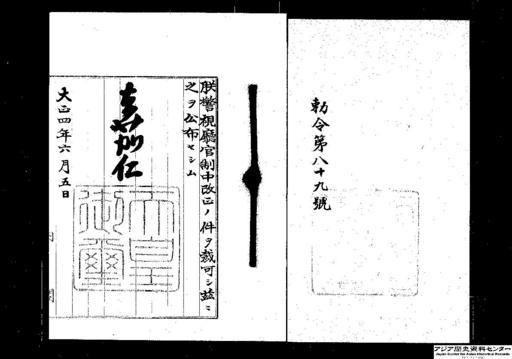 勅令第八十九號
朕警視廳官制中改正ノ件ヲ裁可シ茲ニ
之ヲ公布セシム
嘉仁
天皇御璽
大正四年六月五日
内閣
アジア歴史資料センター
Japan Center for Asian Historical Records